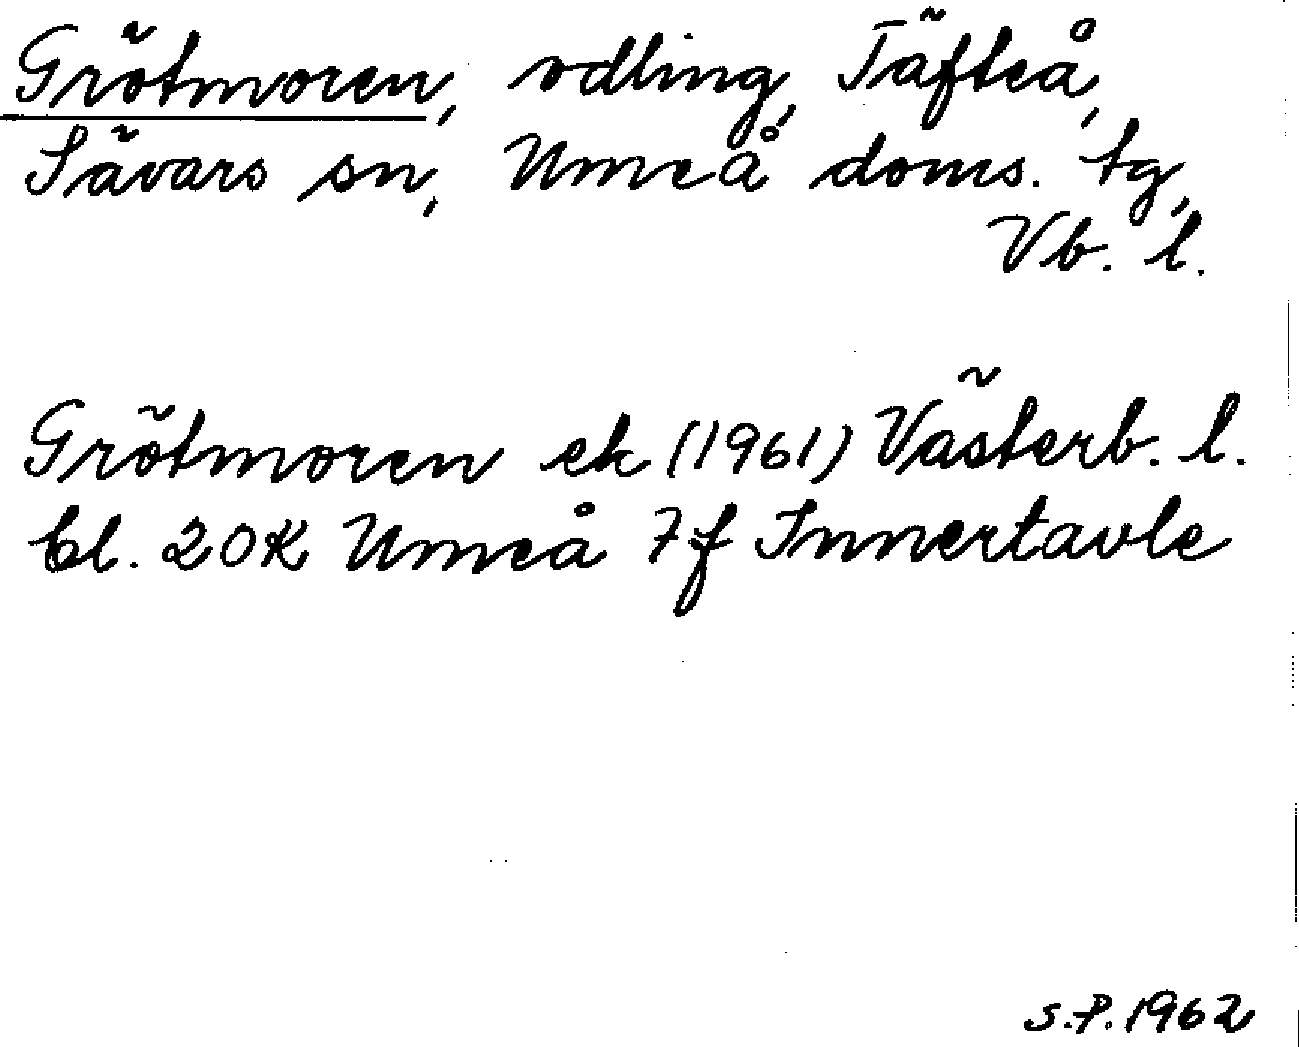 Grötmoren, odling, Täfteå,
Sävars sn, Umeå doms. tg,
Vb. l.
Grötmoren ek (1961) Västerb. l.
bl. 20K Umeå 7f Innertavle
S.P. 1962